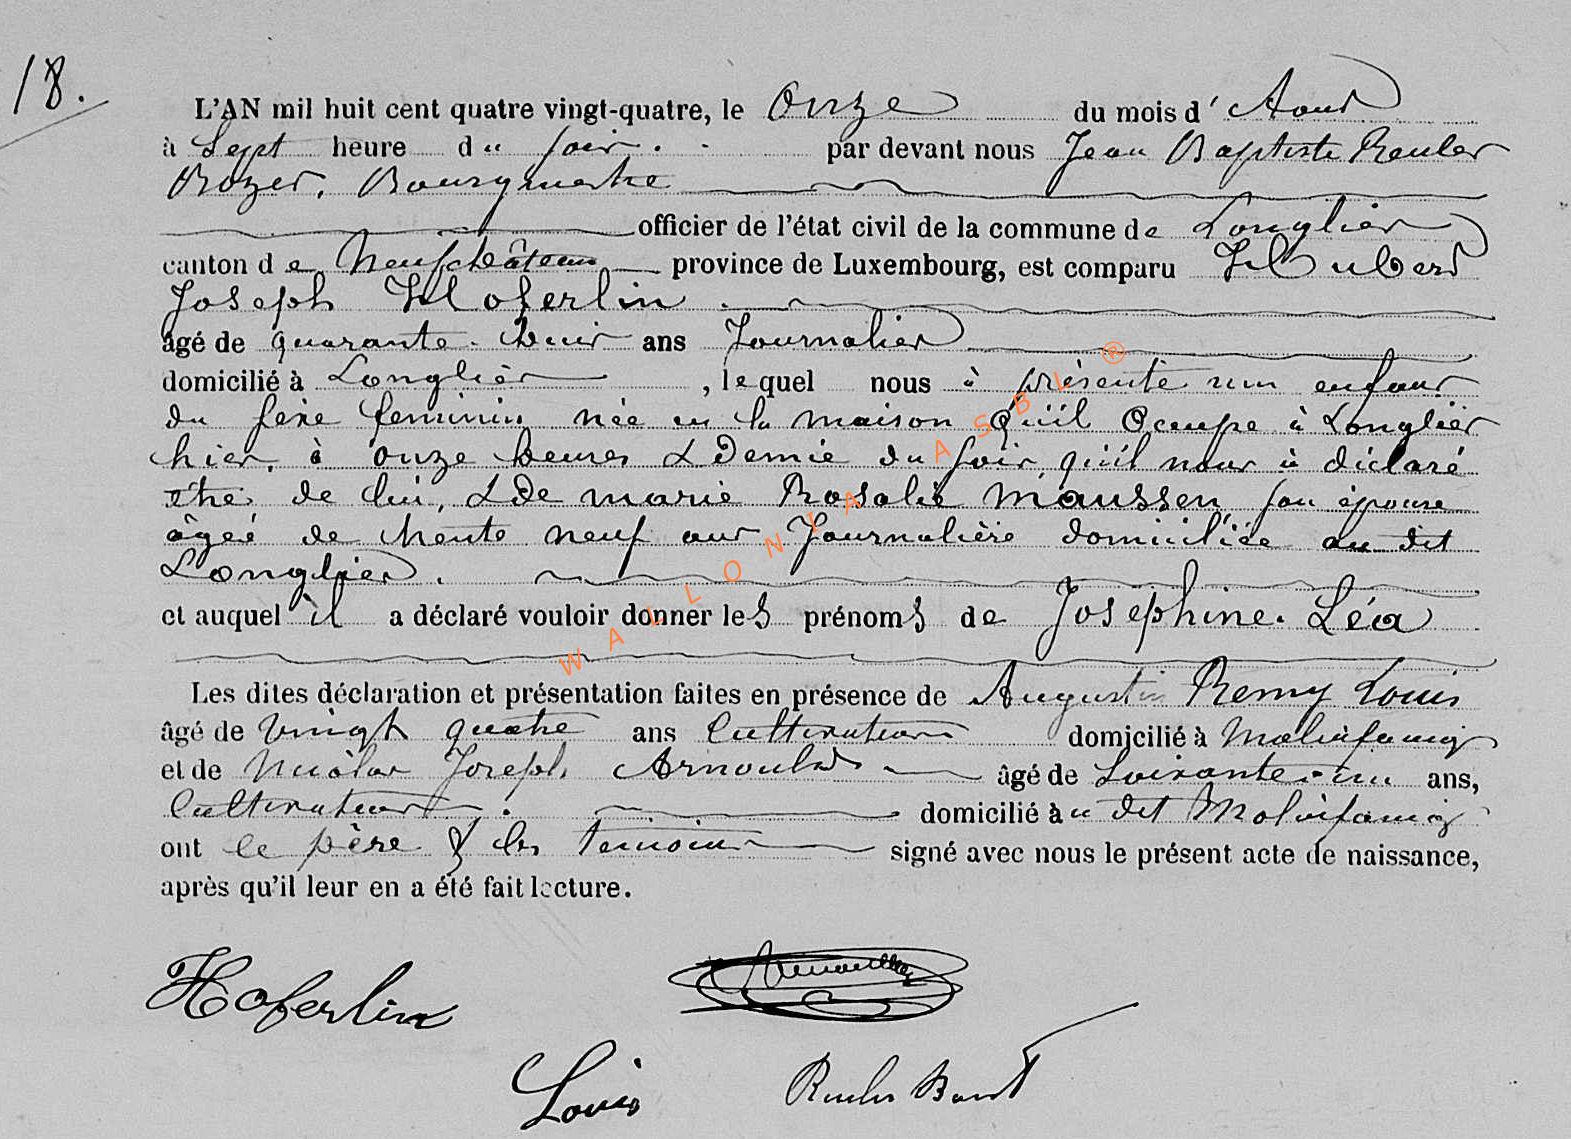 18.
L'AN mil huit cent quatre vingt-quatre, le Onze du mois d' Aout
à Sept heure du soir. par devant nous Jean Baptiste Reuler
Rozer, Bourgmestre
officier de l'état civil de la commune de Longlier
canton de Neufchâteau province de Luxembourg, est comparu Hubert
Joseph Hoferlin
âgé de quarante-huit ans Journalier
domicilié à Longlier, lequel nous à présenté un enfant
du sexe feminin née en la maison qu'il Occupe à Longlier
hier, à onze heures & Demie du soir, qu'il nous à déclaré
être de lui, & de marie Rosalie Maussen, son épouse
âgée de trente neuf ans Journalière domiciliée au dit
Longlier.
et auquel il a déclaré vouloir donner les prénoms de Josephine. Léa
Les dites déclaration et présentation faites en présence de Augustin Remy Louis
âgé de Vingt quatre ans Cultivateur domicilié à Molinfaing
et de Nicolas Joseph Arnould âgé de Soixante-un ans,
Cultivateur. domicilié au dit Molinfaing
ont le père & les témoins signé avec nous le présent acte de naissance,
après qu'il leur en a été fait lecture.
WALLONIA ASBL ®
Hoferlin
Louis